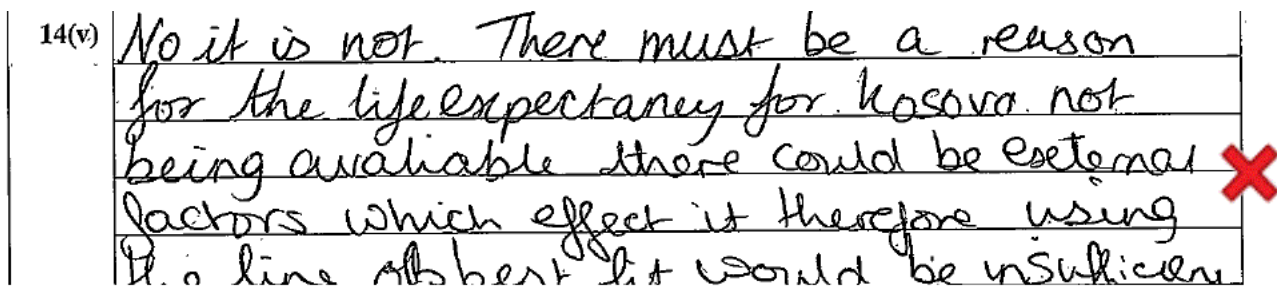 14(v) No it is not. There must be a reason
for the life expectancy for Kosovo not
being avaliable there could be external
factors which effect it therefore using
the line of best fit would be insufficient